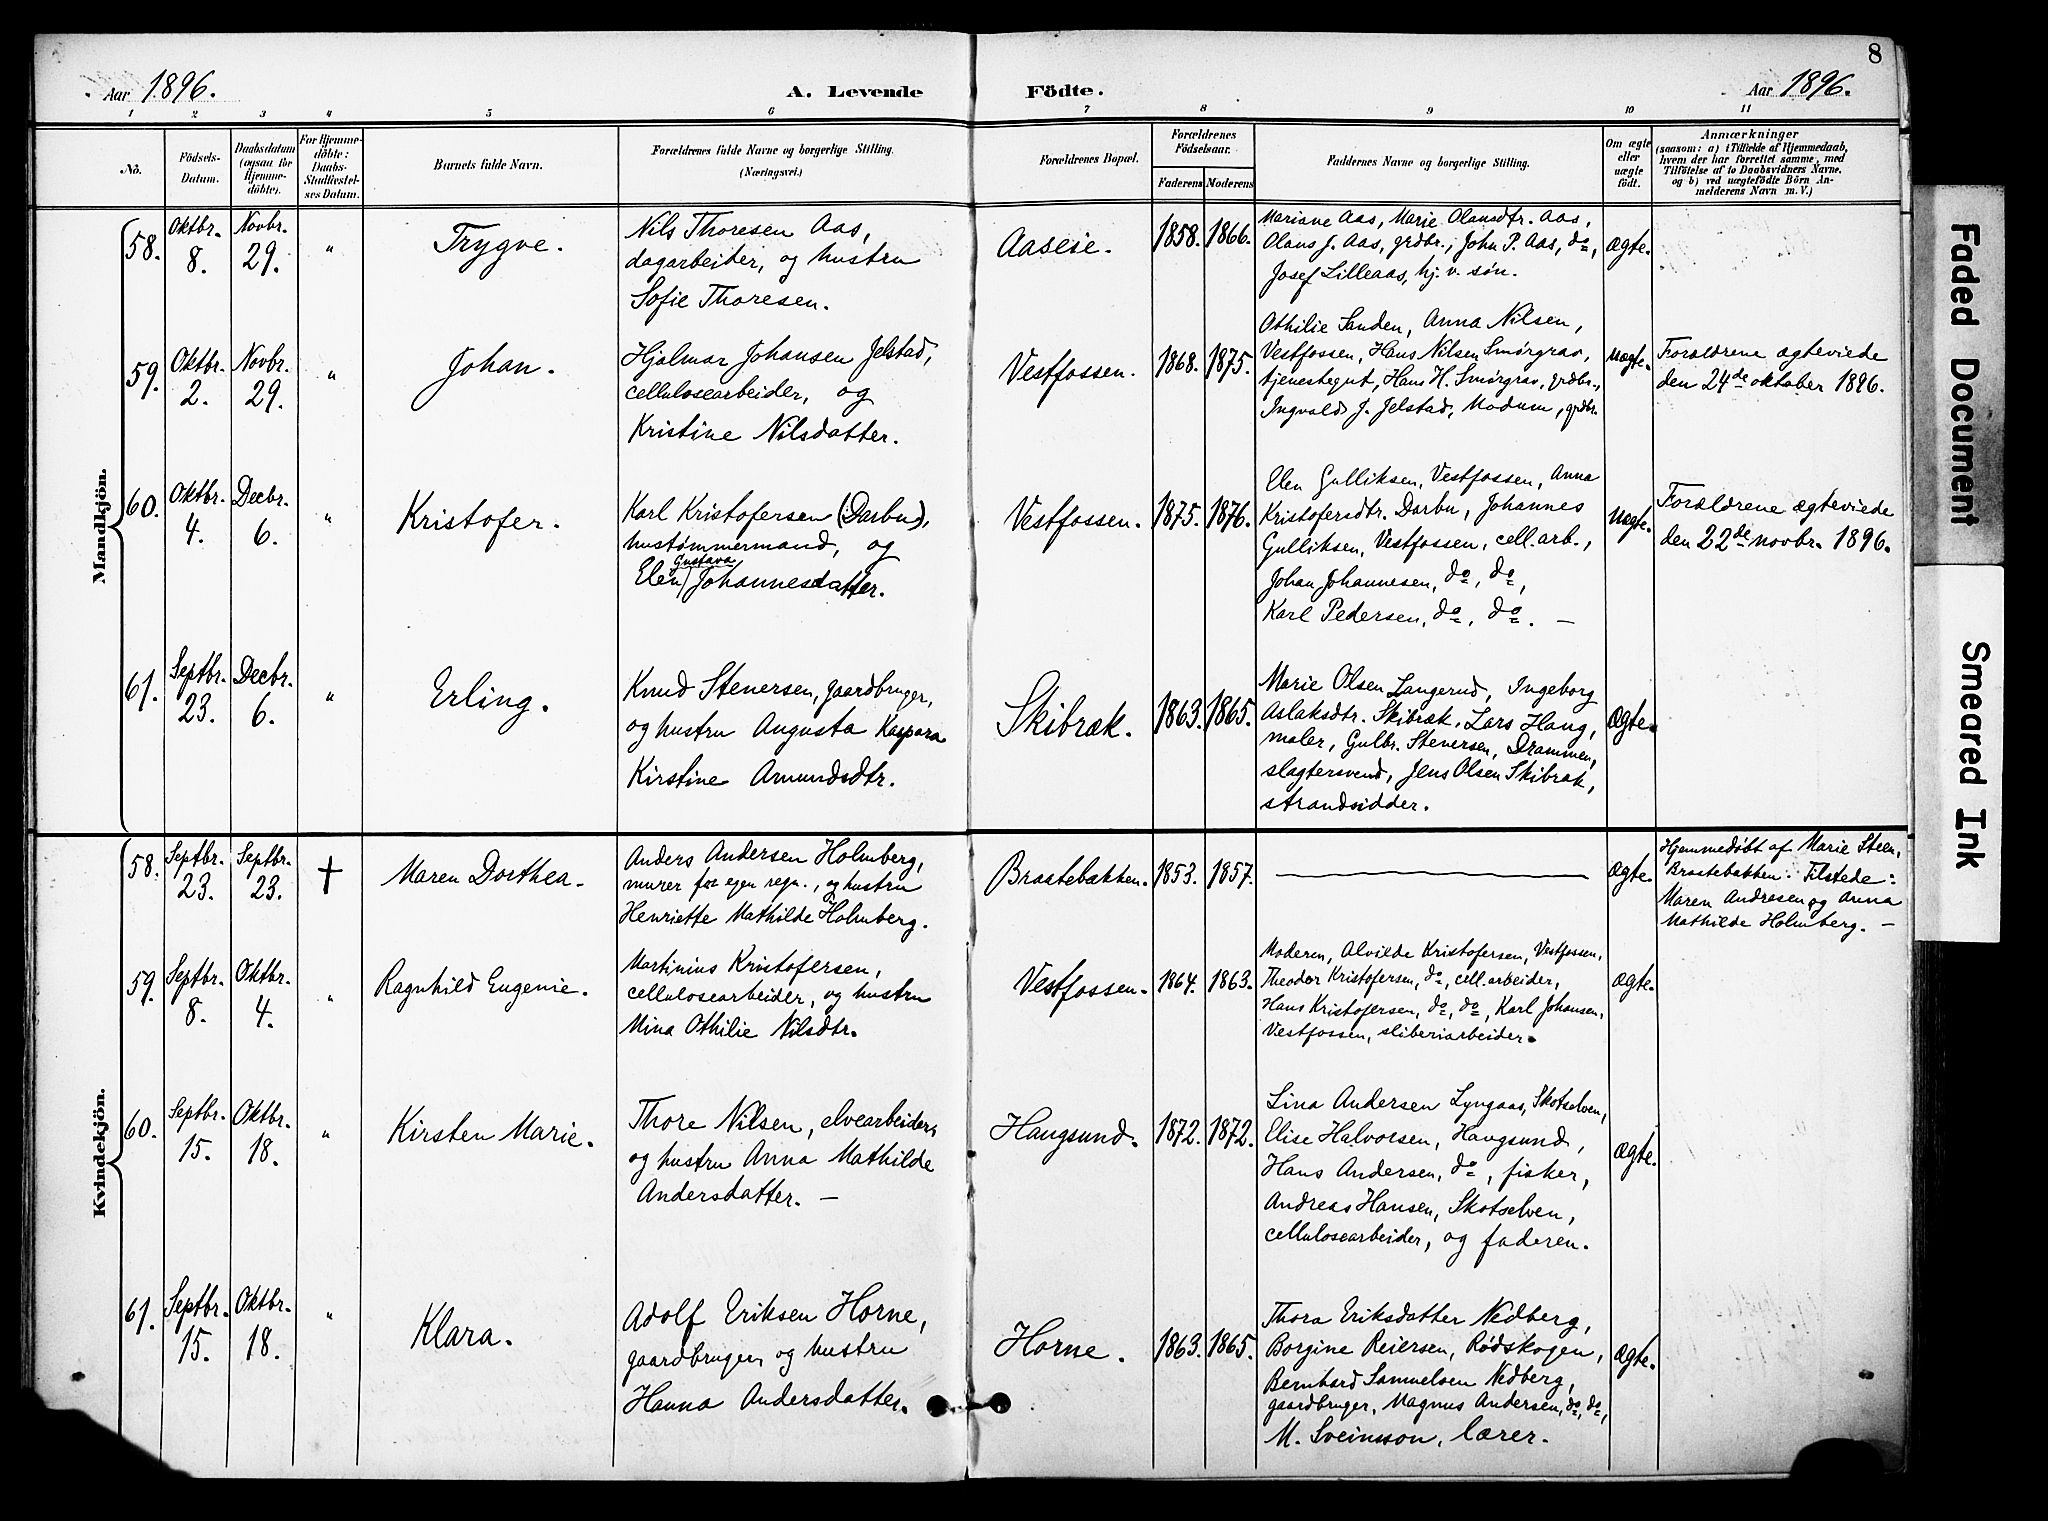 8
Aar 1896.
A. Levende Födte.
Aar 1896.
1 2 3 4 5 6 7 8 9 10 11
No.
Födsels-
Datum.
Daabsdatum
(ogsaa for
Hjemme-
döbte).
For Hjemme-
döbte:
Daabs-
Stadfæstel-
ses Datum.
Barnets fulde Navn.
Forældrenes fulde Navne og borgerlige Stilling.
(Næringsvei.)
Forældrenes Bopæl.
Forældrenes
Födselsaar.
Faderens Moderens
Faddernes Navne og borgerlige Stilling.
Om ægte
eller
uægte
født.
Anmærkninger
(saasom: a) i Tilfælde af Hjemmedaab,
hvem der har forrettet samme, med
Tilføielse af to Daabsvidners Navne,
og b) ved uægtefödte Börn An-
melderens Navn m. V.)
Mandkjön.
58.
Oktbr.
8.
Novbr.
29.
"
Trygve.
Nils Thoresen Aas,
dagarbeider, og hustru
Sofie Thoresen.
Aaseie.
1858. 1866.
Mariane Aas, Marie Olansdtr. Aas,
Olaus J. Aas, grdbr., John P. Aas, do,
Josef Lilleaas, hj. v. søn.
Ægte.
59.
Oktbr.
2.
Novbr.
29.
"
Johan.
Hjalmar Johansen Jelstad,
cellulosearbeider, og
Kristine Nilsdatter.
Vestfossen.
1868. 1875.
Othilie Sanden, Anna Nilsen,
Vestfossen, Hans Nilsen Smørgrav,
tjenestegut, Hans H. Smørgrav, grdbr.,
Ingvald J. Jelstad, Modum, grdbr.
Uægte.
Forældrene ægteviede
den 24de oktober 1896.
60.
Oktbr.
4.
Decbr.
6.
"
Kristofer.
Karl Kristofersen (Darbu),
hustømmermand, og
Gustava
Elen Johannesdatter.
Vestfossen.
1875. 1876.
Elen Gulliksen, Vestfossen, Anna
Kristofersdtr. Darbu, Johannes
Gulliksen, Vestfossen, cell. arb.,
Johan Johannesen, do, do,
Karl Pedersen, do, do. —
Uægte.
Forældrene ægteviede
den 22de novbr. 1896.
61.
Septbr.
23.
Decbr.
6.
"
Erling.
Knud Stenersen, gaardbruger,
og hustru Augusta Kaspara
Kirstine Amundsdtr.
Skibræk.
1863. 1865.
Marie Olsen Langerud, Ingeborg
Aslaksdtr. Skibræk, Lars Haug,
maler, Gulbr. Stenersen, Drammen,
slagtersvend, Jens Olsen Skibræk,
strandsidder.
Ægte.
Kvindekjön.
58.
Septbr.
23.
Septbr.
23.
†
Maren Dorthea.
Anders Andersen Holmberg,
murer for egen regn., og hustru
Henriette Mathilde Holmberg.
Braatebakken.
1853. 1857.
Ægte.
Hjemmedøbt af Marie Steen,
Braatebakken. Tilstede:
Maren Andresen og Anna
Mathilde Holmberg. —
59.
Septbr.
8.
Oktbr.
4.
"
Ragnhild Eugenie.
Martinius Kristofersen,
cellulosearbeider, og hustru
Mina Othilie Nilsdtr.
Vestfossen.
1864. 1863.
Moderen, Alvilde Kristofersen, Vestfossen,
Theodor Kristofersen, do, cell.arbeider,
Hans Kristofersen, do, do, Karl Johansen,
Vestfossen, sliberiarbeider.
Ægte.
60.
Septbr.
15.
Oktbr.
18.
"
Kirsten Marie.
Thore Nilsen, elvearbeider,
og hustru Anna Mathilde
Andersdatter. —
Haugsund.
1872. 1872.
Lina Andersen Lyngaas, Skotselven,
Elise Halvorsen, Haugsund,
Hans Andersen, do, fisker,
Andreas Hansen, Skotselven,
cellulosearbeider, og faderen.
Ægte.
61.
Septbr.
15.
Oktbr.
18.
"
Klara.
Adolf Eriksen Horne,
gaardbruger, og hustru
Hanna Andersdatter.
Horne.
1863. 1865.
Thora Eriksdatter Nedberg,
Borgine Reiersen, Rødskogen,
Bernhard Samuelsen Nedberg,
gaardbruger, Magnus Andersen, do, do,
M. Sveinsson, lærer.
Ægte.
Faded Document
Smeared Ink